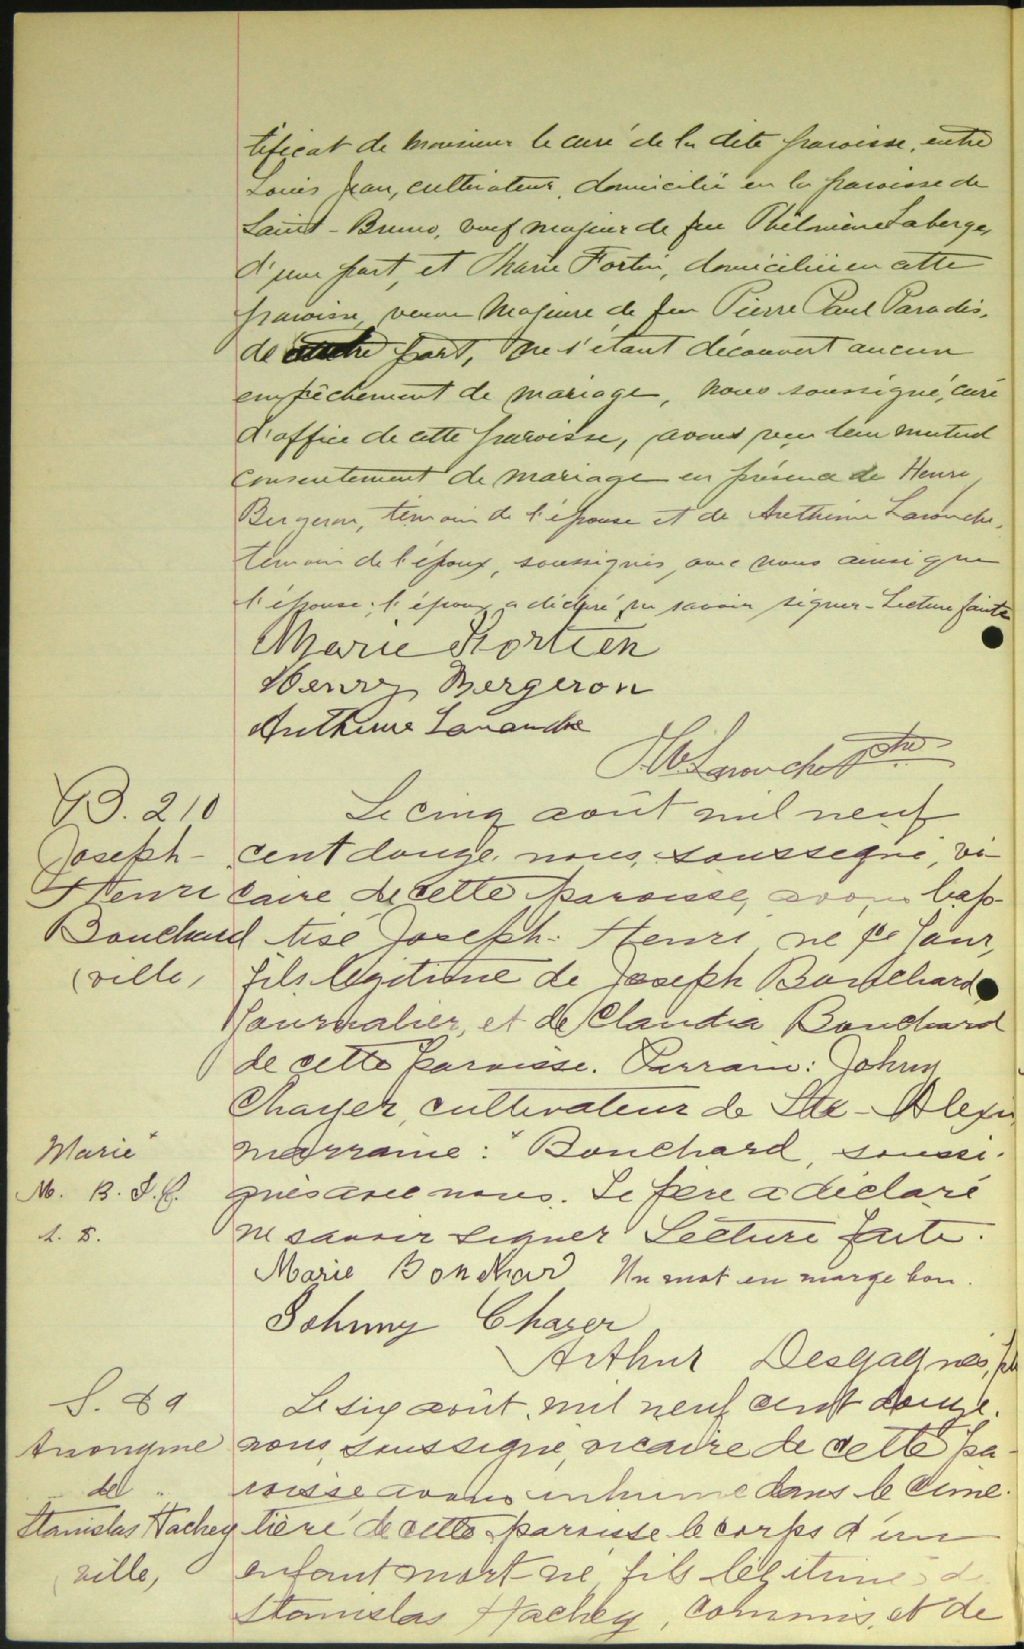 tificat de Monsieur le curé de la dite paroisse, entre
Louis Jean, cultivateur, domicilié en la paroisse de
Saint-Bruno, veuf majeur de feu Philomène Laberge,
d'une part, et Marie Fortin, domiciliée en cette
paroisse, veuve majeure de feu Pierre Paul Paradis,
de part, ne s'étant découvert aucun
empêchement de mariage, nous soussigné, curé
d'office de cette paroisse, avons reçu leur mutuel
consentement de mariage en présence de Henry
Bergeron, témoin de l'épouse et de Anthime Larouche,
témoin de l'époux, soussignés, avec nous ainsi que
l'épouse; l'époux a déclaré ne savoir signer - Lecture faite
Marie Fortien
Henry Bergeron
Anthime Larouche
Larouche Ptre
B. 210
Joseph-
Henri
Bouchard
(ville,
Le cinq août mil neuf
cent douze, nous, soussigné, vi-
caire de cette paroisse, avons bap-
tisé Joseph-Henri, né ce jour,
fils légitime de Joseph Bouchard,
journalier, et de Claudia Bouchard
de cette paroisse. Parrain: Johnny
Chayer, cultivateur de Ste-Alexis
Marie x
M. B. J. C.
A. D.
marraine: x Bouchard, soussi-
gnés avec nous. Le père a déclaré
ne savoir signer Lecture faite.
Marie Bouchar Un mot en marge bon.
Johnny Chayer
Arthur Desgagnés, ptr
S. 89
Anonyme
de
Stanislas Hachey
(ville,
Le six août, mil neuf cent douze,
nous, soussigné, vicaire de cette pa-
roisse avons inhumé dans le cime-
tière de cette paroisse le corps d'un
enfant mort-né, fils légitime de
Stanislas Hachey, commis, et de